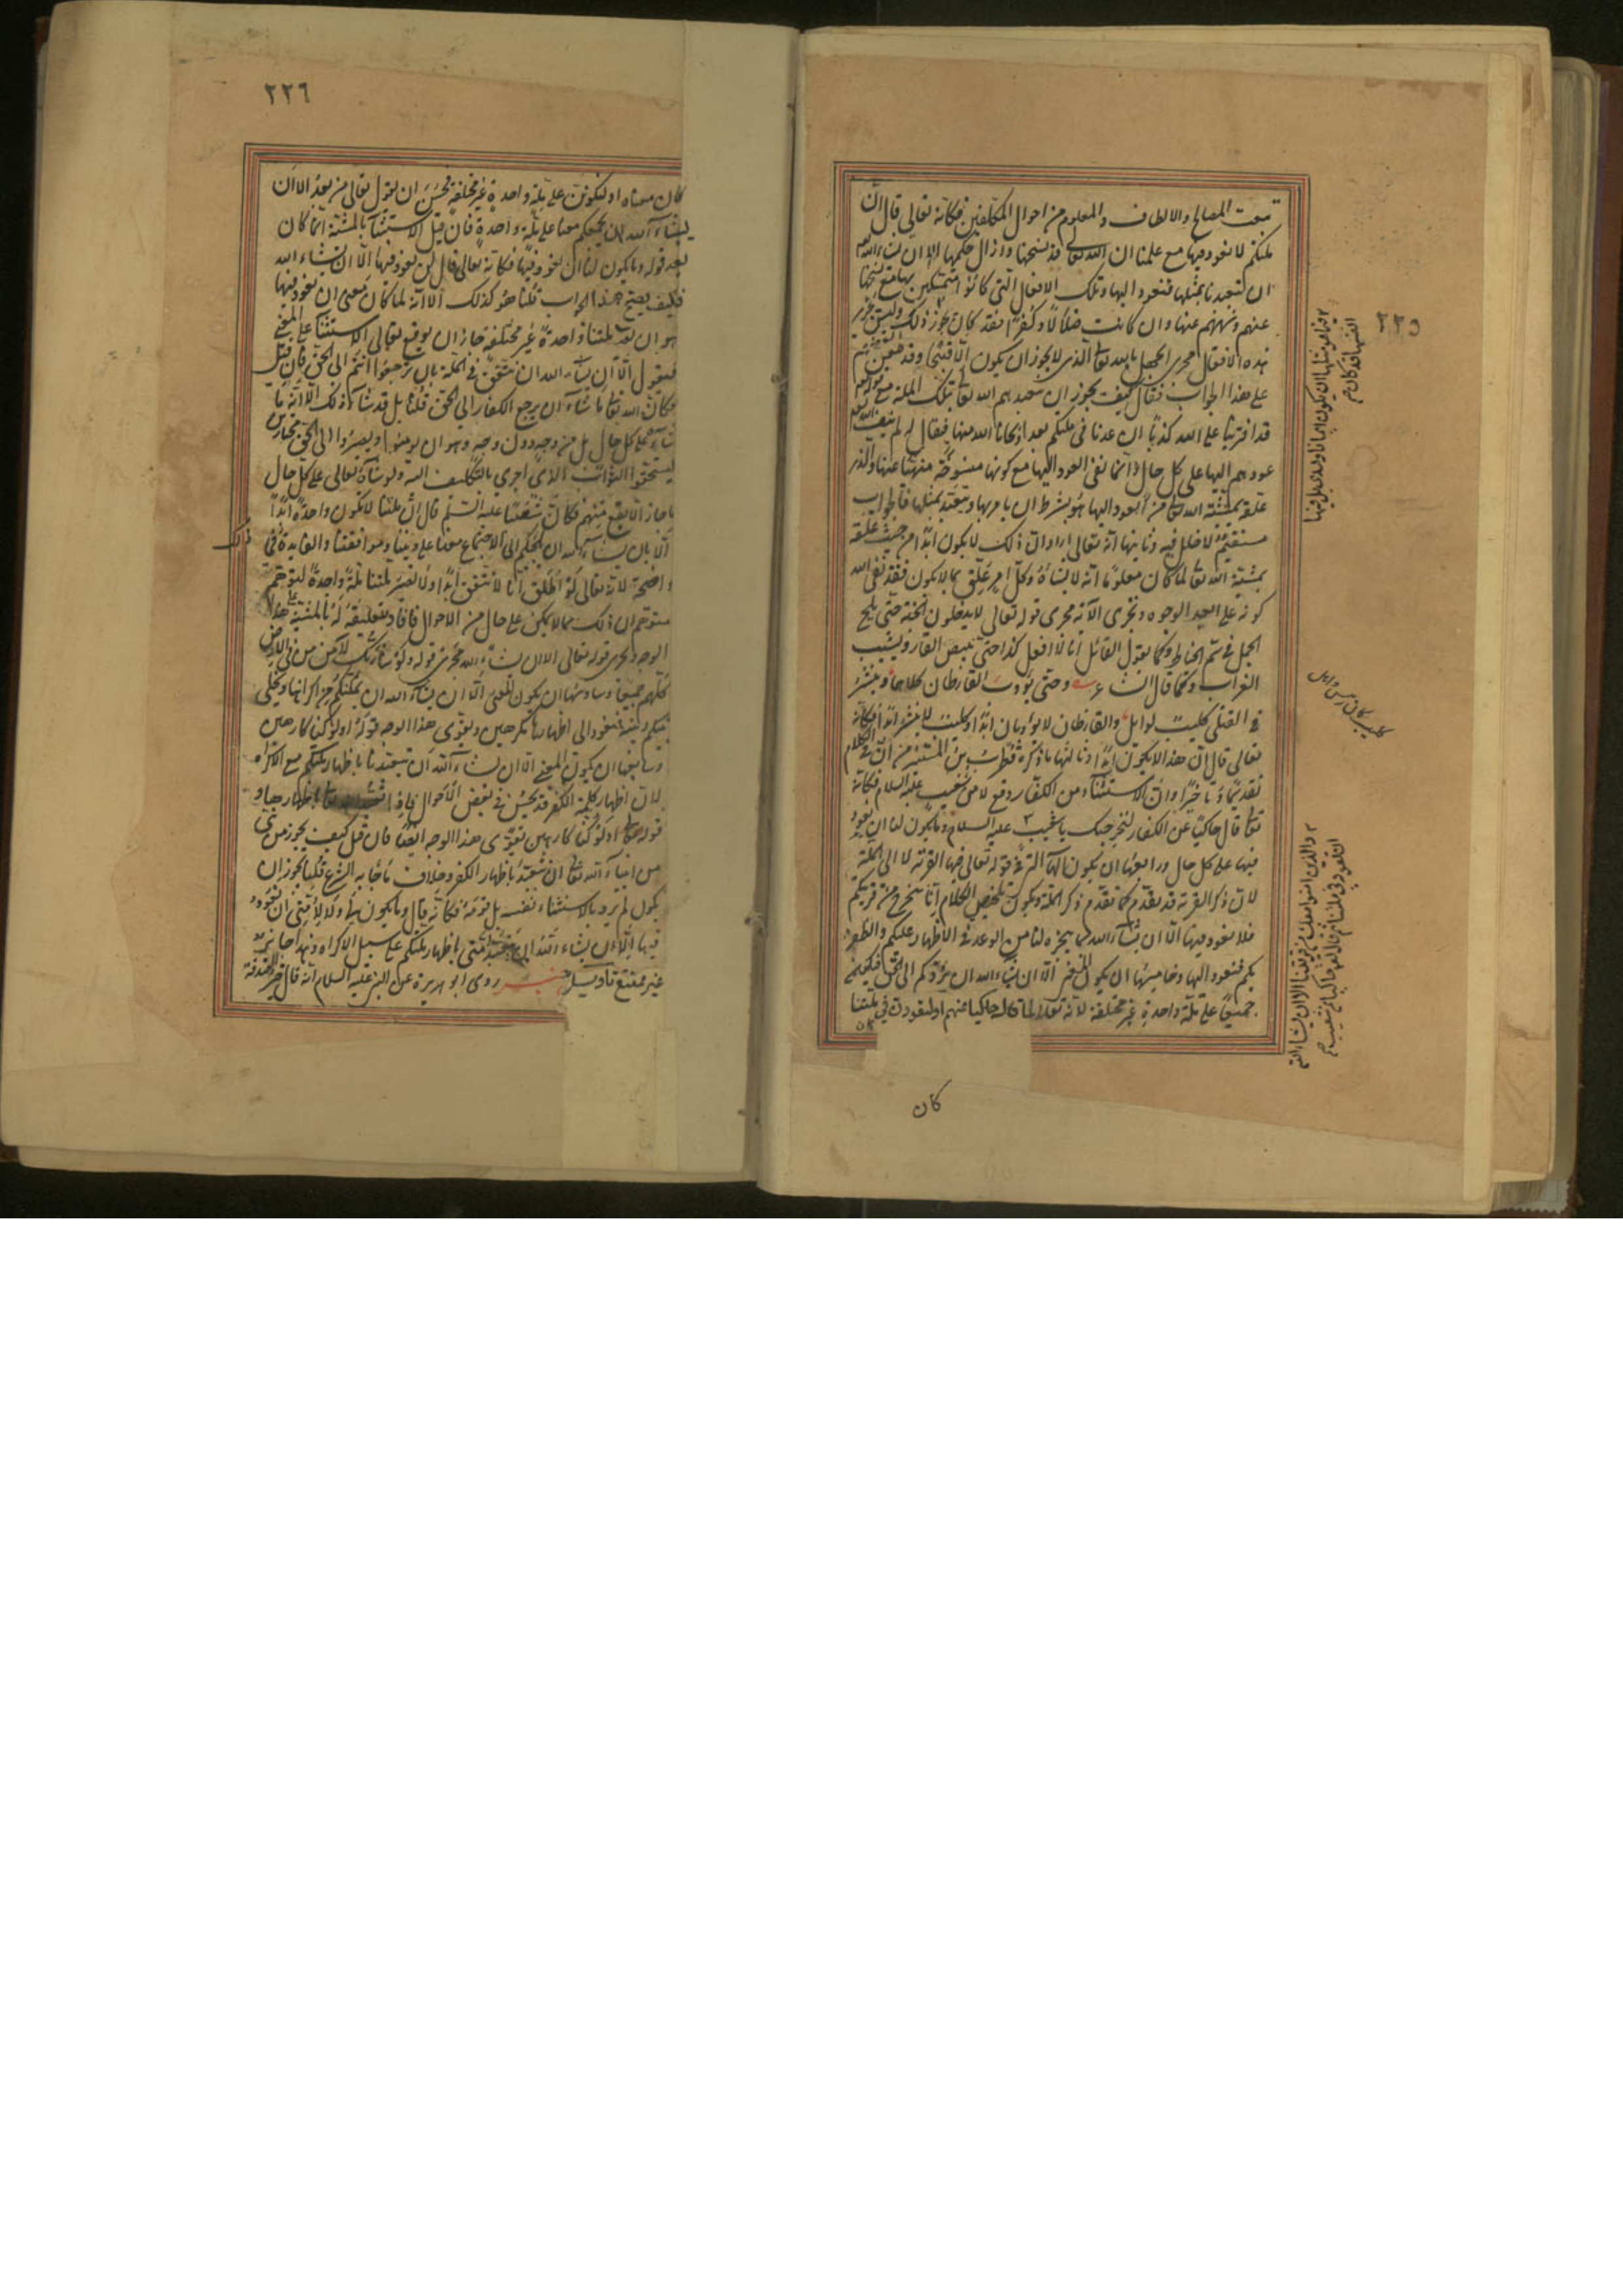 ٢٢٥
تبعت المصالح والالطاف والمعلوم من احوال المكلفين فكانه تعالى قال ان
ملتكم لا نعود فيها مع علمنا ان الله تعالى قد نسخها وازال حكمها الا ان يشاء الله
ان يتعبدنا بمثلها فنعود اليها وتلك الافعال التي كانوا متمسكين بها مع نسخها
عنهم ونهيهم عنها وان كانت ضلالا وكفرا فقد كان يجوز ذلك وليس تجري
هذه الافعال مجرى الجهل بالله تعالى الذي لا يجوز ان يكون الا قبيحا وقد طعن بعضهم
على هذا الجواب فقال كيف يجوز ان يتعبدهم الله تعالى بتلك الملة مع قوله
قد افترينا على الله كذبا ان عدنا في ملتكم بعد اذ نجانا الله منها فيقال له لم ينف
عودهم اليها على كل حال وانما نفى العود اليها مع كونها منسوخة منهيا عنها والذي
علقه بمشية الله تعالى من العود اليها هو بشرط ان يأمر بها ويتعبد بمثلها فالجواب
مستقيم لا خلل فيه وثانيها انه تعالى اراد ان ذلك لا يكون ابدا من حيث علقه
بمشية الله تعالى لما كان معلوما انه لا يشاؤه وكل امر علق بما لا يكون فقد نفى الله
كونه على ابعد الوجوه وتجري الآية مجرى قوله تعالى لا يدخلون الجنة حتى يلج
الجمل في سم الخياط وكما يقول القائل انا لا افعل كذا حتى يبيض القار ويشيب
الغراب وكما قال الشاعر وحتى يؤوب القارظان كلاهما وينشر
في القتلى كليب لوايل والقارظان لا يؤوبان ابدا وكليب لا ينشر ابدا فكانه
تعالى قال ان هذا لا يكون ابدا وثالثها ما ذكره قطرب بن المستنير من ان في الكلام
تقديما وتأخيرا وان الاستثناء من الكفار وقع لا من شعيب عليه السلام فكانه
تعالى قال حاكيا عن الكفار لنخرجنك يا شعيب ٢ عليه السلام وما يكون لنا ان نعود
فيها على كل حال ورابعها ان يكون الهاء التي في قوله تعالى فيها القرية لا الى الملة
لان ذكر القرية قد تقدم كما تقدم ذكر الملة ويكون تلخيص الكلام انا سنخرج من قريتكم
فلا نعود فيها الا ان يشاء الله بما ينجزه لنا من الوعد في الاظهار عليكم والظفر
بكم فنعود اليها وخامسها ان يكون المعنى الا ان يشاء الله ان يردكم الى الحق فنكون
جميعا على ملة واحدة غير مختلفة لانه تعالى لما قال حاكيا عنهم او لتعودن في ملتنا
كان
كليب كان رئيس وايل
٢ والذين امنوا معك من قريتنا الا ان يشاء الله
ان تعود في ملتنا ثم قال الله حاكيا عن شعيب
كان
٢٢٦
كان معناه او لنكونن على ملة واحدة غير مختلفة فحسن ان يقول تعالى من بعد الا ان
يشاء الله ان يجمعكم معنا على ملة واحدة فان قيل الاستثناء بالمشية انما كان
بعد قوله وما يكون لنا ان نعود فيها فكانه تعالى قال ليس نعود فيها الا ان يشاء الله
فكيف يصح هذا الجواب قلنا هو كذلك الا انه لما كان معنى ان نعود فيها
هو ان تصير ملتنا واحدة غير مختلفة جاز ان يوقع تعالى الاستثناء على المعنى
فيقول الا ان يشاء الله ان نتفق في الملة بان ترجعوا انتم الى الحق فان قيل
فكان الله تعالى ما شاء ان يرجع الكفار الى الحق قلنا بل قد شاء ذلك الا انه ما
شاءه على كل حال بل من وجه دون وجه وهو ان يؤمنوا ويصيروا الى الحق مختارين
ليستحقوا الثواب الذي اجرى بالتكليف اليه ولو شاءه تعالى على كل حال
ما جاز الا يقع منهم فكان شعيبا عليه السلم قال ان ملتنا لا تكون واحدة ابدا
الا بان يشاء الله ان يلجئكم الى الاجتماع معنا على ديننا وموافقتنا والفايدة في ذلك
واضحة لانه تعالى لو اطلق انا لا نتفق ابدا ولا تصير ملتنا ملة واحدة لتوهم
متوهم ان ذلك مما لا يمكن على حال من الاحوال فافاد بتعليقه له بالمشية هذا
الوجه ويجري قوله تعالى الا ان يشاء الله مجرى قوله ولو شاء ربك لآمن من في الارض
كلهم جميعا وسادسها ان يكون المعنى الا ان يشاء الله ان يمكنكم من اكراهنا ويخلي
بينكم وبينه فنعود الى اظهارها مكرهين ويقوي هذا الوجه قوله اولو كنا كارهين
وسابعها ان يكون المعنى الا ان يشاء الله ان يتعبدنا باظهار ملتكم مع الاكراه
لان اظهار كلمة الكفر قد يحسن في بعض الاحوال اذا تعبد الله تعالى باظهارها و
قوله تعالى اولو كنا كارهين يقوي هذا الوجه ايضا فان قيل كيف يجوز من نبي
من انبياء الله تعالى ان يتعبد باظهار الكفر وخلاف ما جاء به الشرع قلنا يجوز ان
يكون لم يرد بالاستثناء نفسه بل قومه فكانه قال وما يكون لي ولا لامتي ان نعود
فيها الا ان يشاء الله ان يتعبد امتي باظهار ملتكم على سبيل الاكراه وهذا جايز
غير ممتنع تأويل خبر روى ابو هريرة عن النبي عليه السلام انه قال خير الصدقة